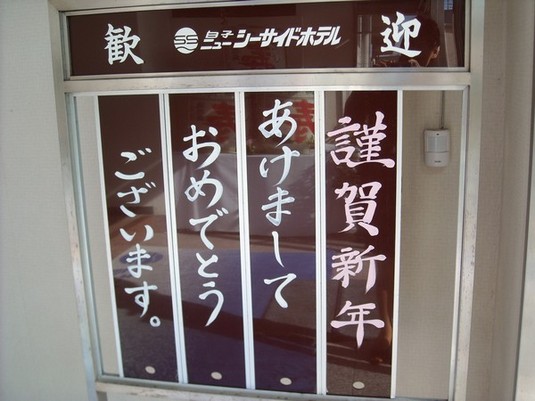 歓迎
SS 皇子ニューシーサイドホテル
謹賀新年
あけまして
おめでとう
ございます。